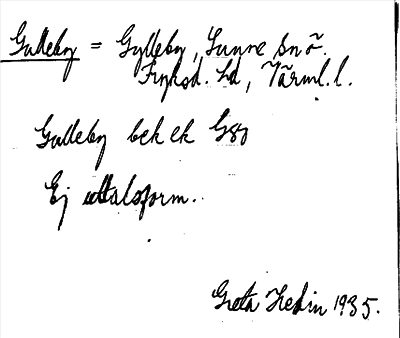 Gulleby = Gylleby, Sunne sn ö.
Fryksd. hd, Värml. l.
Gulleby bek ek G 38
Ej uttalsform.
Greta Hedin 1935.